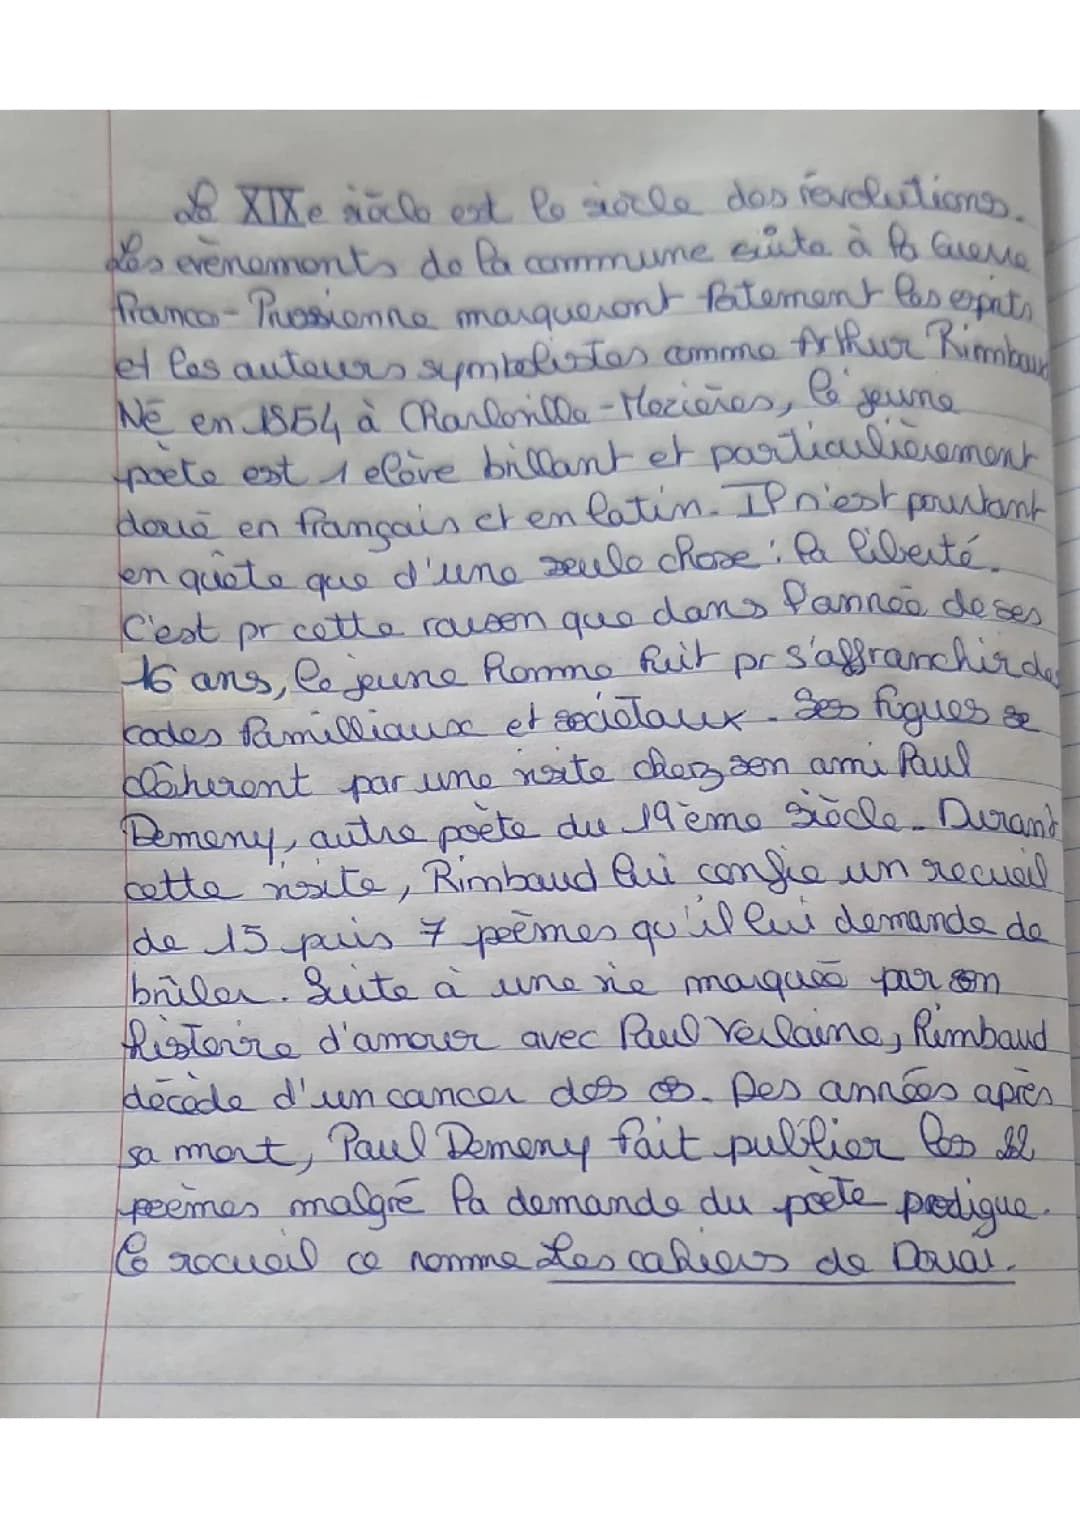 Le XIXe siècle est le siècle des révolutions.
Les evènements de la commune suite à la Guerre
franco-Prussienne marqueront fatement les esprits
et les auteurs symbolistes comme Arthur Rimbaud
Né en 1854 à Charleville-Mezières, le jeune
poète est 1 elève brillant et particulièrement
doué en français et en latin. Il n'est pourtant
en quête que d'une seule chose : la liberté.
C'est pr cette raison que dans l'année de ses
16 ans, le jeune homme fuit pr s'affranchir des
codes familliaux et sociétaux. Ses fugues se
clôherent par une visite chez son ami Paul
Demeny, autre poète du 19ème siècle. Durant
cette visite, Rimbaud lui confie un recueil
de 15 puis 7 poèmes qu'il lui demande de
brûler. Suite à une vie marquée par son
histoire d'amour avec Paul Verlaine, Rimbaud
décède d'un cancer des os. Des années après
sa mort, Paul Demeny fait publier les 22
poèmes malgré la demande du poète prodigue.
Le recueil ce nomme Les cahiers de Douai.